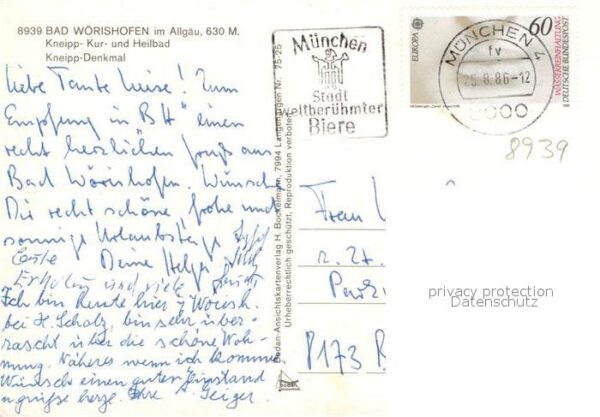 8939 BAD WÖRISHOFEN im Allgäu, 630 M.
Kneipp- Kur- und Heilbad
Kneipp-Denkmal
Liebe Tante Luise! Zum
Empfang in BH einen
recht herzlichen Gruß aus
Bad Wörishofen. Wünsche
Dir recht schöne, frohe und
sonnige Urlaubstage
Gute Deine Helga
Erholung und viele
Ich bin heute hier in Wörish.
bei H. Scholz, bin sehr über-
rascht über die schöne Woh-
nung. Näheres wenn ich komme
Wünsche einen guten
grüße herzl. Ihre Geiger.
Bedan-Ansichtskartenverlag H. Bockelmann, 7994 Langenargen Nr. 75-25
Urheberrechtlich geschützt, Reproduktion verboten
München
Stadt
weltberühmter
Biere
EUROPA
60
WASSERREINHALTUNG
DEUTSCHE BUNDESPOST
MÜNCHEN 4
fv
25.8.86-12
8000
8939
Frau
z. Zt.
Park
8173 B
privacy protection
Datenschutz